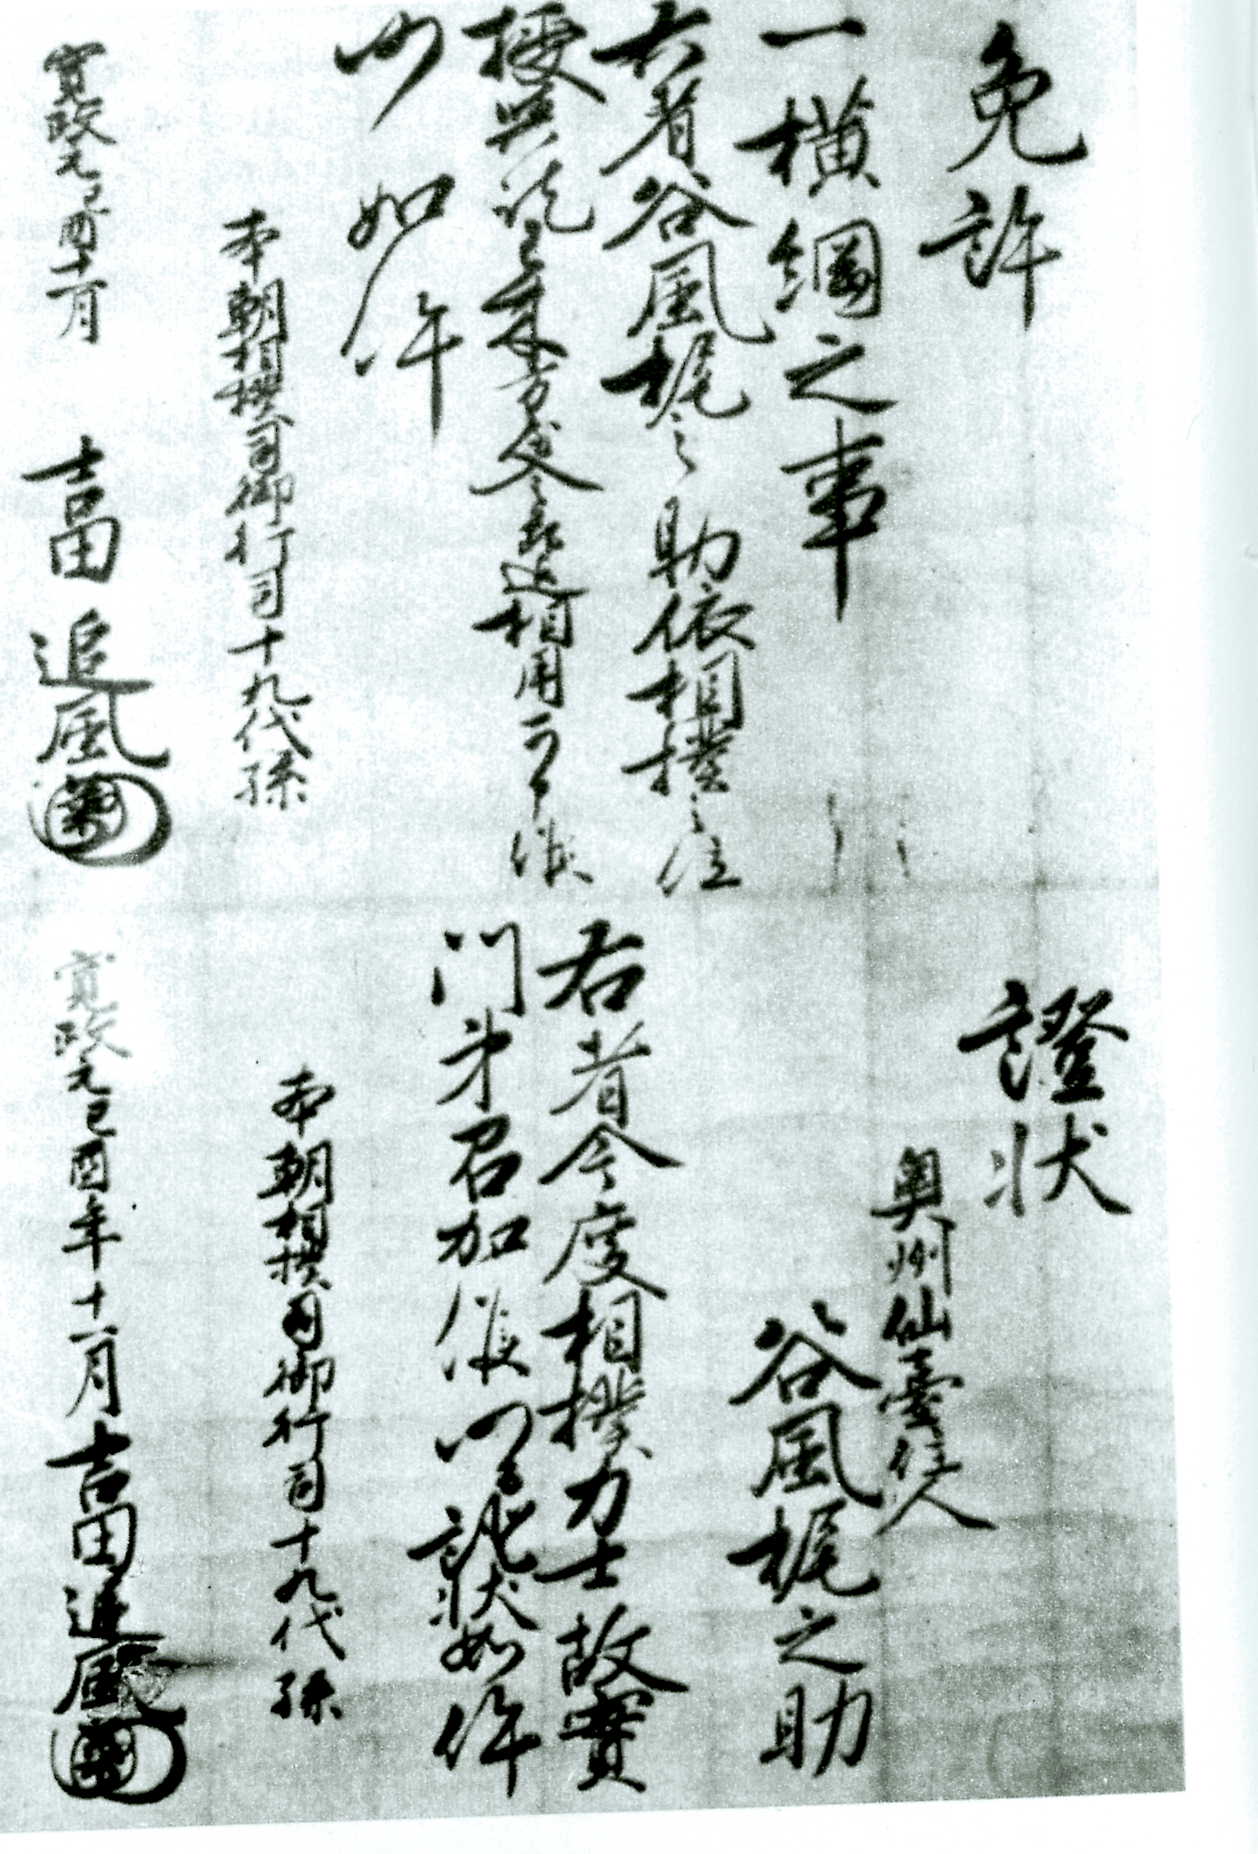 免許
一横綱之事
右者谷風梶之助依相撲之位
授與訖以来方屋入之節迄相用可申候
仍如件
本朝相撲司御行司十九代孫
寛政元己酉十一月
吉田追風
證状
奥州仙臺住人
谷風梶之助
右者今度相撲力士故實
門弟召加候仍證状如件
本朝相撲司御行司十九代孫
寛政元己酉年十一月
吉田追風